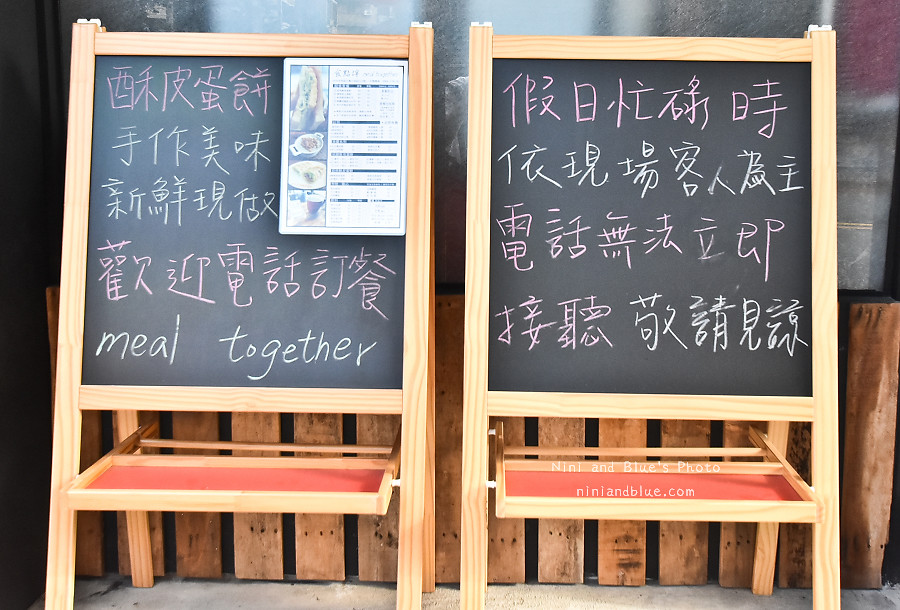 酥皮蛋餅
手作美味
新鮮現做
歡迎電話訂餐
meal together
假日忙碌時
依現場客人為主
電話無法立即
接聽 敬請見諒
Nini and Blue's Photo
niniandblue.com